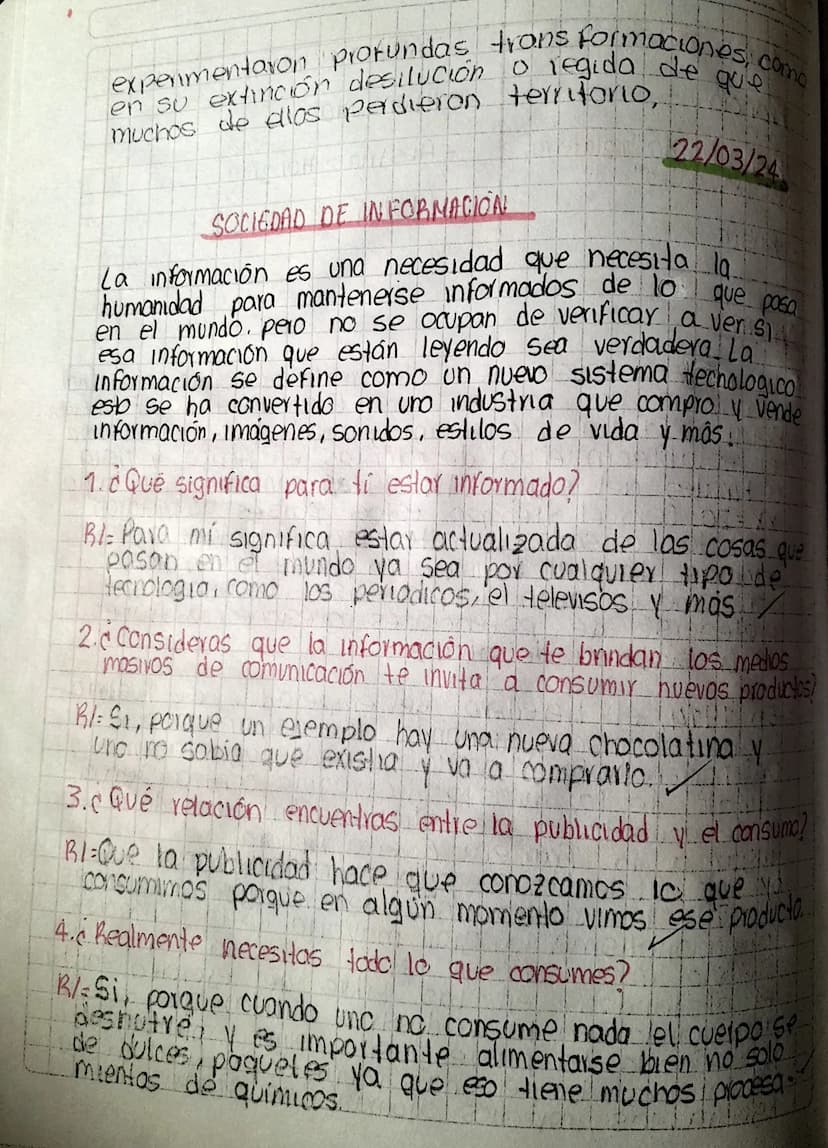 experimentaron profundas transformaciones, como
en su extinción desilución o regida de que
muchos de ellos perdieron territorio,
22/03/24
SOCIEDAD DE INFORMACIÓN
La información es una necesidad que necesita la
humanidad para mantenerse informados de lo que pasa
en el mundo. pero no se ocupan de verificar a ver si
esa información que están leyendo sea verdadera. La
información se define como un nuevo sistema techologico
esto se ha convertido en uno industria que compra y vende
información, imágenes, sonidos, estilos de vida y más.
1. ¿Qué significa para ti estar informado?
R/= Para mí significa estar actualizada de las cosas que
pasan en el mundo ya sea por cualquier tipo de
tecnologia, como los periódicos, el televisos y más
2. ¿Consideras que la información que te brindan los medios
masivos de comunicación te invita a consumir nuevos productos?
R/= Si, porque un ejemplo hay una nueva chocolatina y
uno no sabia que existia y va a comprarlo.
3. ¿Qué relación encuentras entre la publicidad y el consumo?
R/= Que la publicidad hace que conozcamos lo que
consumimos porque en algún momento vimos ese producto
4. ¿Realmente necesitas todo lo que consumes?
R/= Si, porque cuando uno no consume nada el cuerpo se
desnutre, y es importante alimentarse bien no solo
de dulces, paquetes ya que eso tiene muchos procesa-
mientos de químicos.